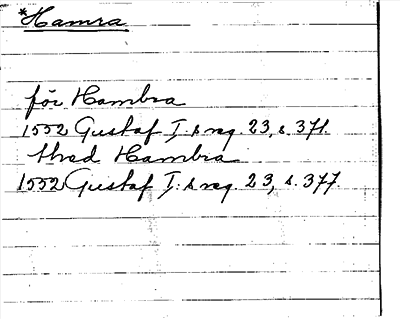 *Hamra
för Hambra
1552 Gustaf I:s reg. 23, s. 371.
thrad Hambra
1552 Gustaf I:s reg. 23, s. 377.